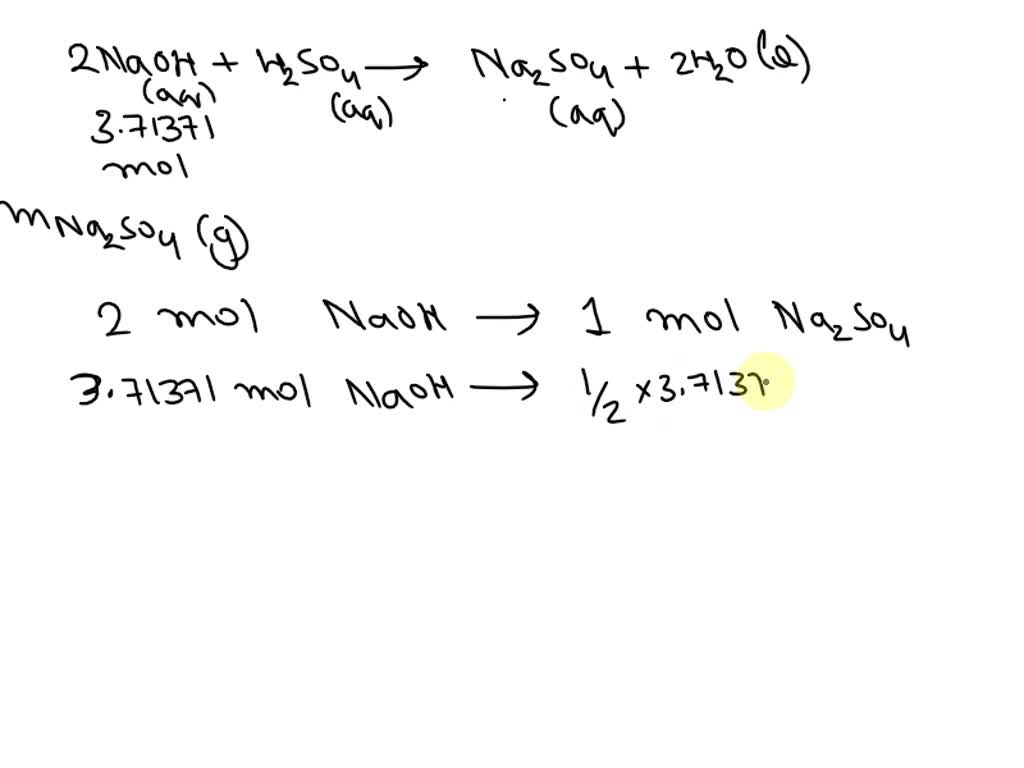 2NaOH + H₂SO₄ → Na₂SO₄ + 2H₂O (l)
(aq) (aq) (aq)
3.71371
mol
mNa₂SO₄ (g)
2 mol NaOH → 1 mol Na₂SO₄
3.71371 mol NaOH → 1/2 × 3.7137